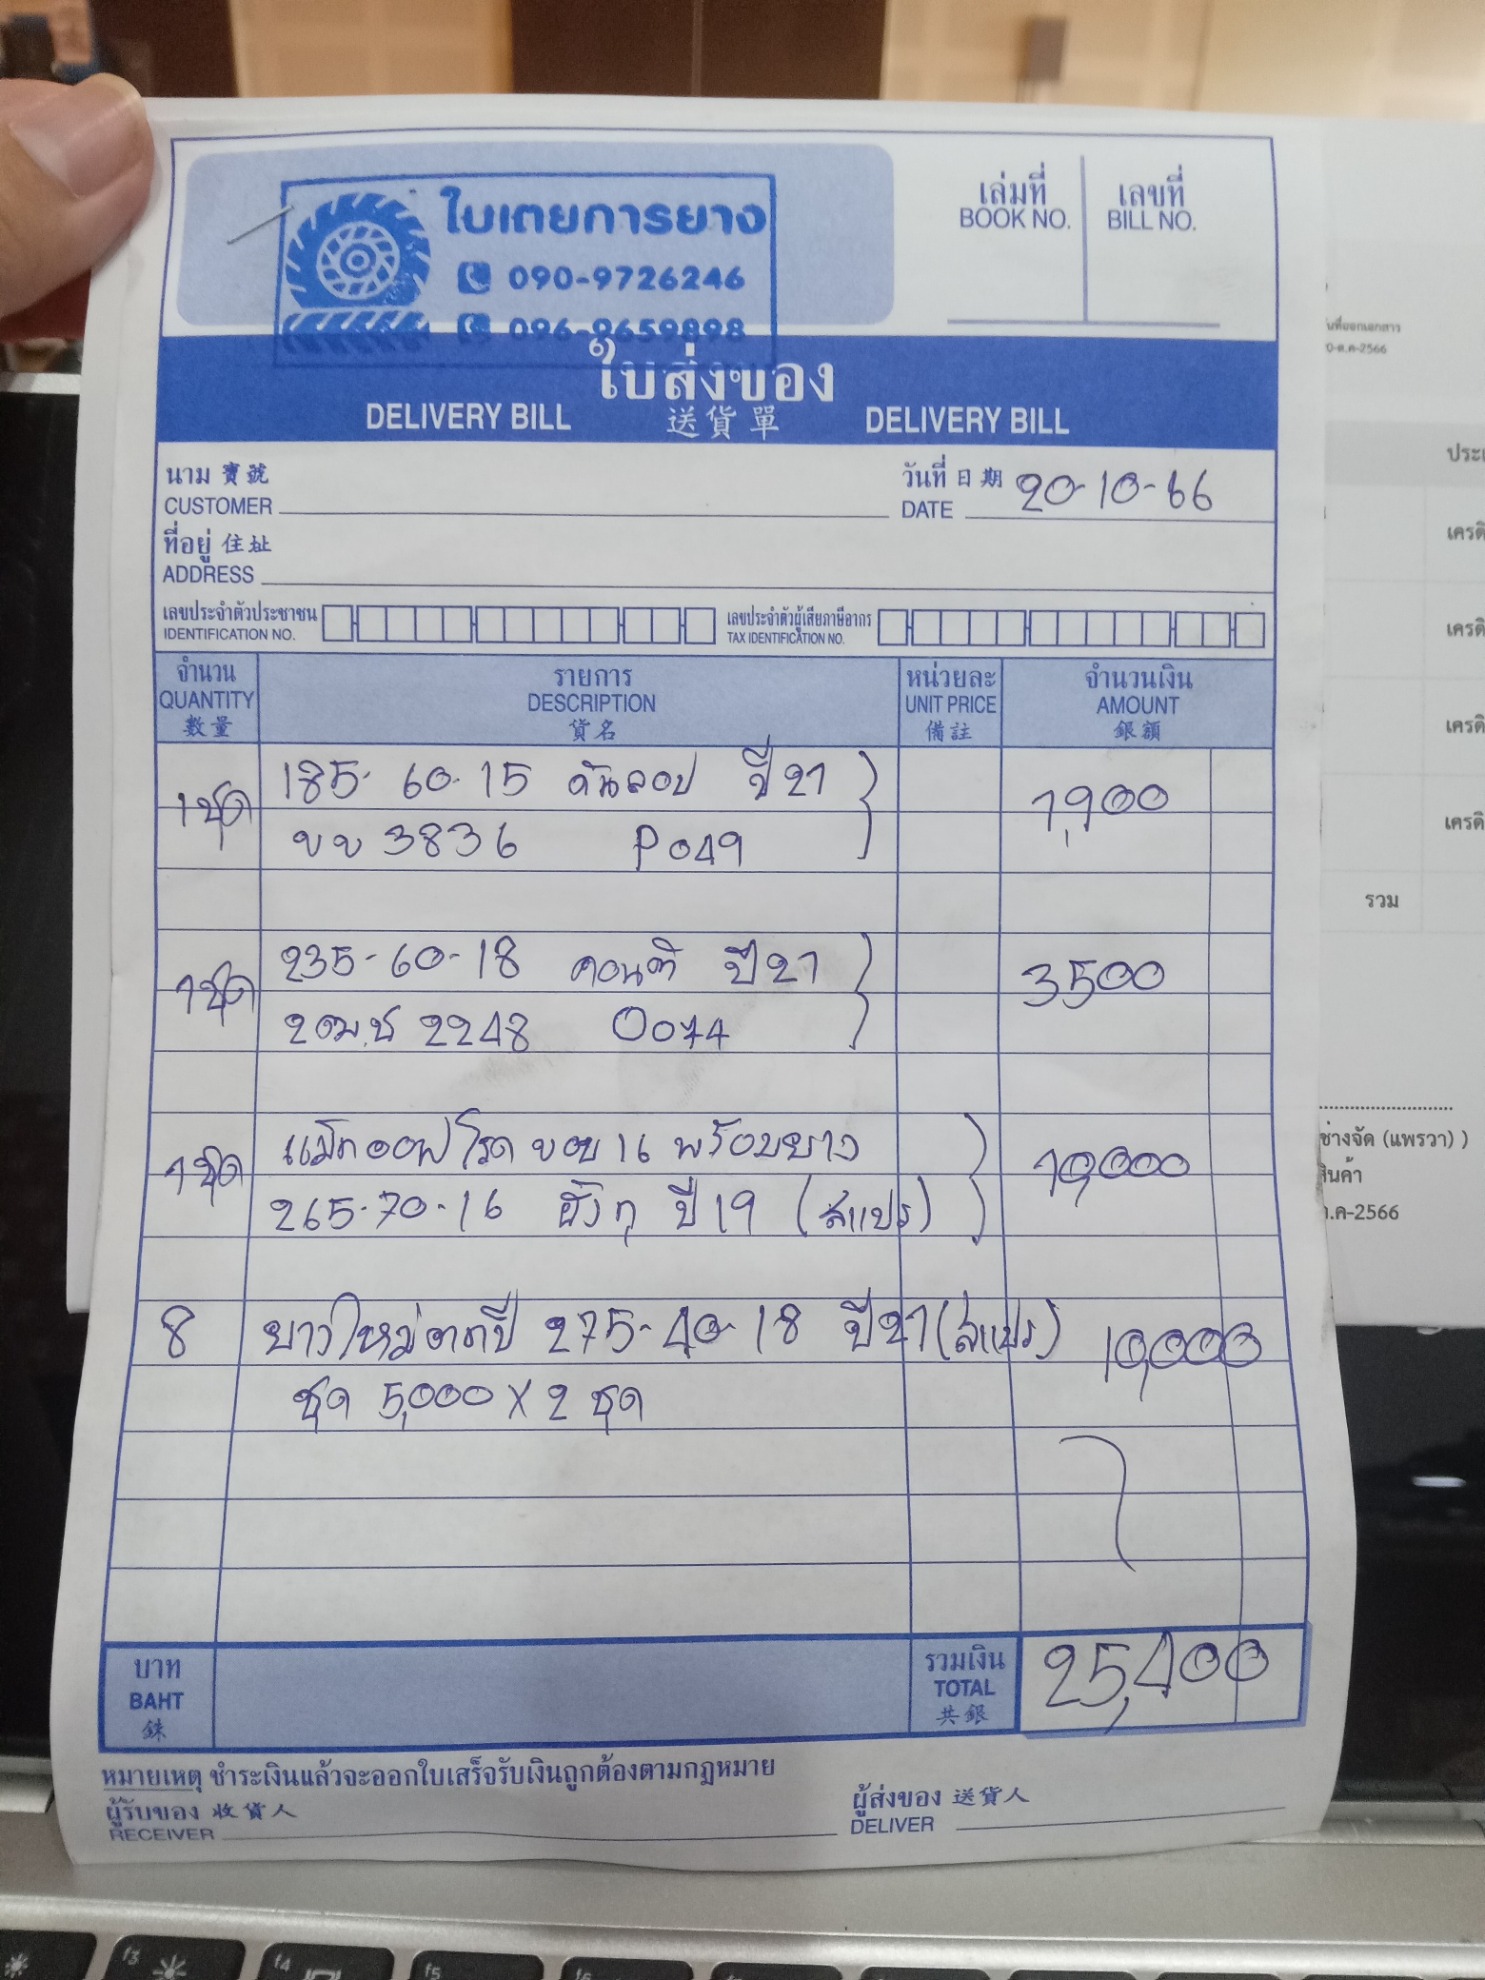 ใบเตยการยาง
090-9726246
096-9659898
เล่มที่
BOOK NO.
เลขที่
BILL NO.
ใบส่งของ
DELIVERY BILL 送貨單 DELIVERY BILL
นาม 寶號
CUSTOMER
วันที่ 日期 20-10-66
DATE
ที่อยู่ 住址
ADDRESS
เลขประจำตัวประชาชน
IDENTIFICATION NO.
เลขประจำตัวผู้เสียภาษีอากร
TAX IDENTIFICATION NO.
จำนวน รายการ หน่วยละ จำนวนเงิน
QUANTITY DESCRIPTION UNIT PRICE AMOUNT
數量 貨名 備註 銀額
1ชุด 185-60-15 ดันลอป ปี 21 1,900
ขข 3836 P049
1ชุด 235-60-18 คอนติ ปี 21 3500
2ฒช 2248 O074
1ชุด แม็กออฟโรด ขอบ 16 พร้อมยาง 10,000
265-70-16 ฮังกุ ปี 19 (สแปร)
8 ยางใหม่ตกปี 275-40-18 ปี 21 (สแปร) 10,000
ชุด 5,000 X 2 ชุด
บาท รวมเงิน 25,400
BAHT TOTAL
銖 共銀
หมายเหตุ ชำระเงินแล้วจะออกใบเสร็จรับเงินถูกต้องตามกฎหมาย
ผู้รับของ 收貨人
RECEIVER
ผู้ส่งของ 送貨人
DELIVER
วันที่ออกเอกสาร
0-ต.ค-2566
ประเ
เครดิ
เครดิ
เครดิ
เครดิ
รวม
ช่างจัด (แพรวา) )
สินค้า
.ค-2566
f3
f4
f5